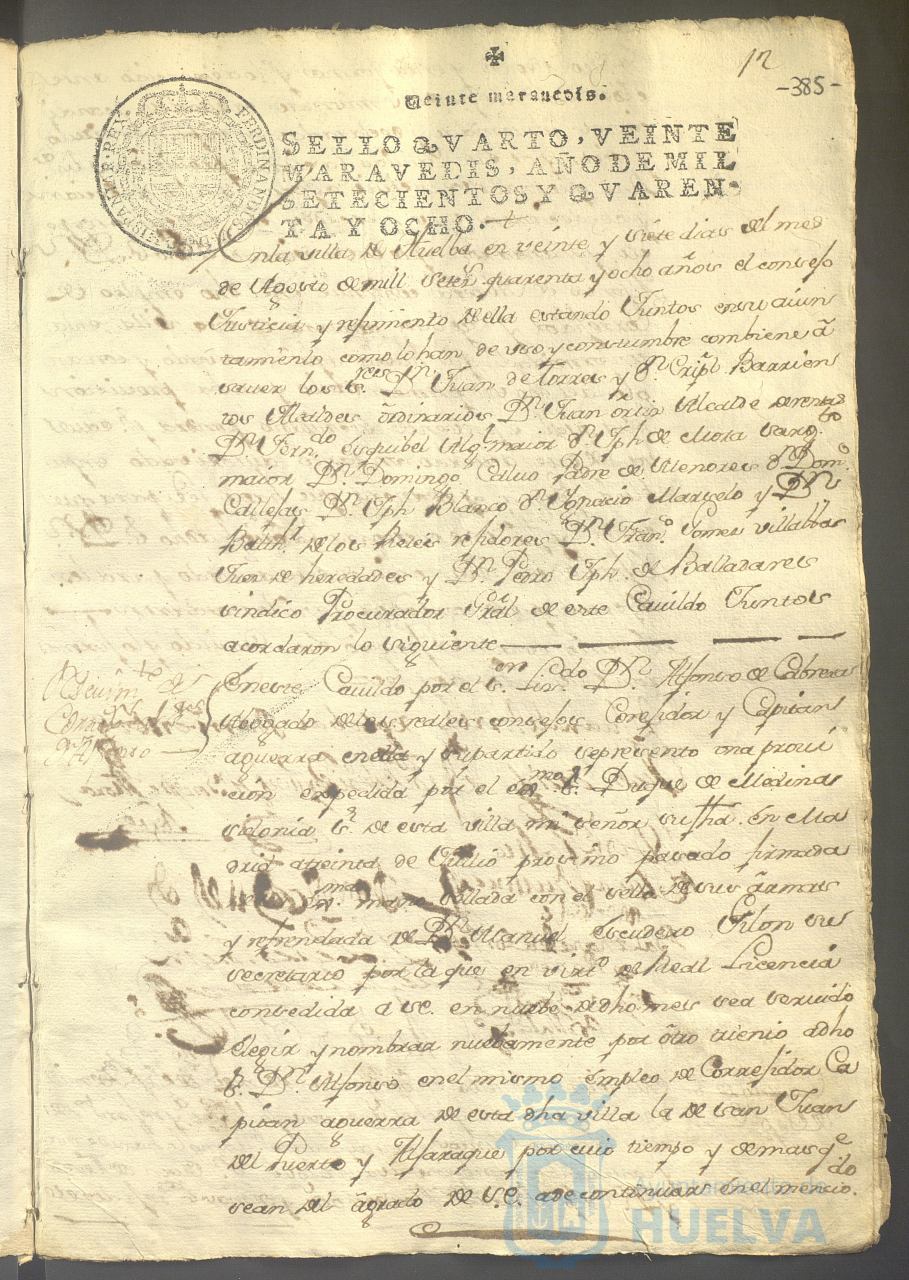 12
-385-
Veinte maravedis.
SELLO QVARTO, VEINTE
MARAVEDIS, AÑO DE MIL
SETECIENTOS Y QVAREN-
TA Y OCHO.
FERDINANDUS VI D G HISPANIAR REX
En la villa de Huelba en veinte y siete dias del mes
de Agosto de mill setes. quarenta y ocho años el consejo
Justicia y rejimiento de ella estando Juntos en su aiun
tamiento como lo han de vso y constumbre combiene â
saver los ss.res Dn. Juan de Torres y Dn. Cripl. Barrien
tos Alcaldes ôrdinarios Dn. Juan ortin Alcalde de rentas
Dn. Fern.do esquibel Alg.l maior Dn. Jph de Mora sarg.to
maior Dn. Domingo Calvo Padre de Menores Dn. Dom.o
Callejas Dn. Jph Blanco Dn. Ignacio Marzelo y Dn.
Balth.r de los Reies rejidores Dn. Fran.co Gomes Villalbas
Juez de heredades y Dn. Pedro Jph. de Balladares
sindico Procurador Gral de este Cavildo Juntos
acordaron lo siguiente
En este Cavildo por el s.r Lis.do Dn. Alfonso de Cabrera
Abogado de los reales consejos Corejidor y Capitan
aguerra en ella y su partido se presento una provi
cion expedida por el ex.mo s.r Duque de Medina
sidonia s.r de esta villa mi señor su fha. en Ma
drid a treinta de Julio procsimo pasado firmada
de su mano sellada con el sello de sus ârmas
y refrendada de Dn. Manuel escudero Gilon su
secretario por la que en virt.d de Real Licencia
consedida a S.E. en nuebe de dho mes sea servido
elegir y nombrar nuebamente por ôtro trienio a dho
s.r Dn. Alfonso en el mismo êmpleo de Correjidor Ca
pitan aguerra de esta dha villa la de san Juan
del Puerto y Alfaraque por cuio tiempo y demas q.e
sean del âgrado de S.E. a de continuar en el mencio.do
Ayuntamiento de
HUELVA